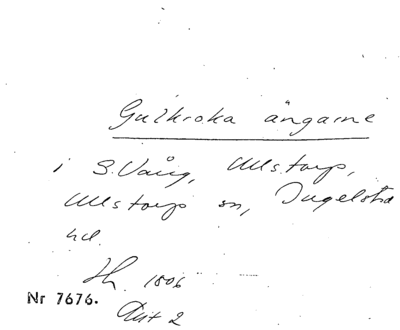 Gulkroka ängarne
i S. Vång, Ullstorp,
Ullstorp sn, Ingelstad
hd.
Hh. 1806
Nr 7676.
Akt 2